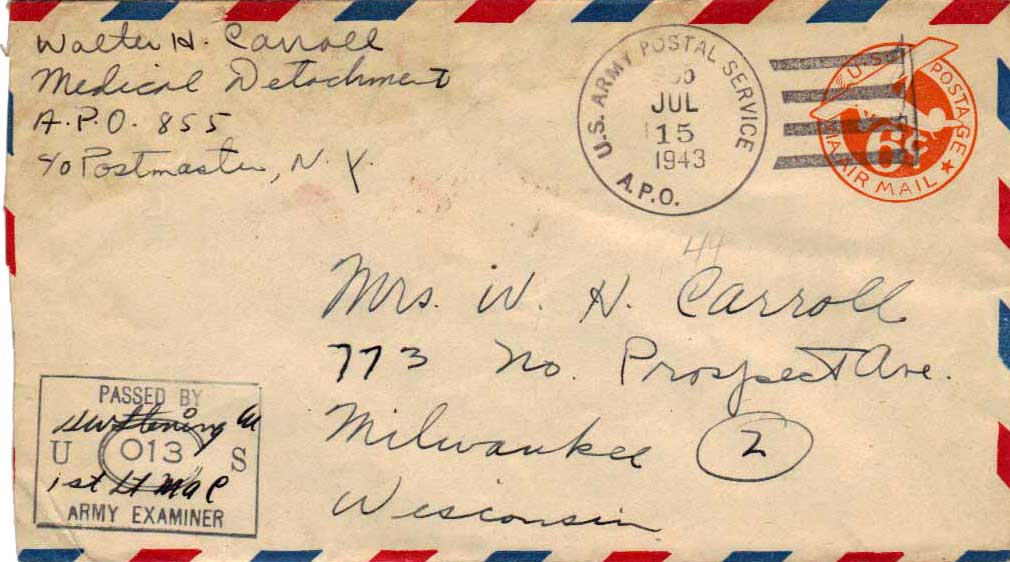 Walter H. Carroll
Medical Detachment
A.P.O. 855
c/o Postmaster, N.Y.
U.S. ARMY POSTAL SERVICE
JUL
15
1943
A.P.O.
U.S. POSTAGE
6¢
VIA AIR MAIL
44
Mrs. W. H. Carroll
773 No. Prospect Ave.
Milwaukee 2
Wisconsin
PASSED BY
U 013 S
1st Lt MAC
ARMY EXAMINER